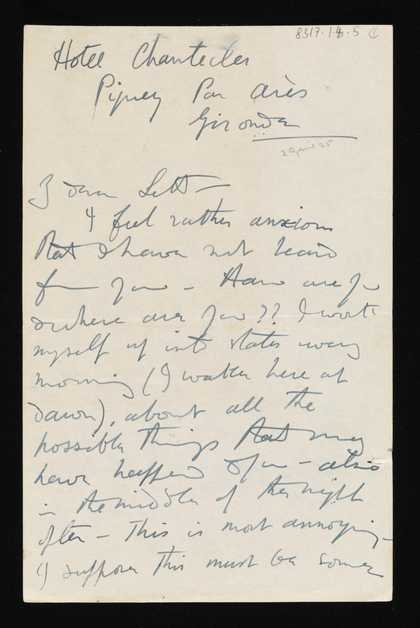 8317.1.4.5
Hotel Chantecler
Piquey Par Arès
Gironde
2 April 25
dear Lett –
I feel rather anxious
that I have not heard
from you – How are you
& where are you?? I work
myself up into states every
morning (I wake here at
dawn), about all the
possible things that may
have happened to you – also
in the middle of the night
often – This is most annoying –
I suppose this must be some